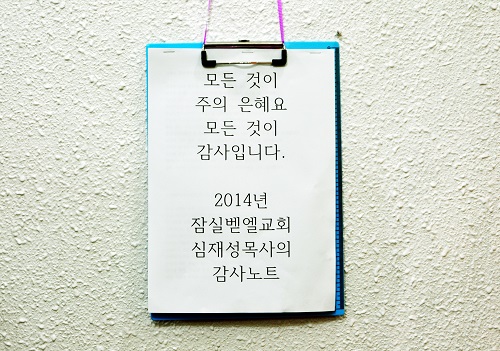 모든 것이
주의 은혜요
모든 것이
감사입니다.
2014년
잠실벧엘교회
심재성목사의
감사노트